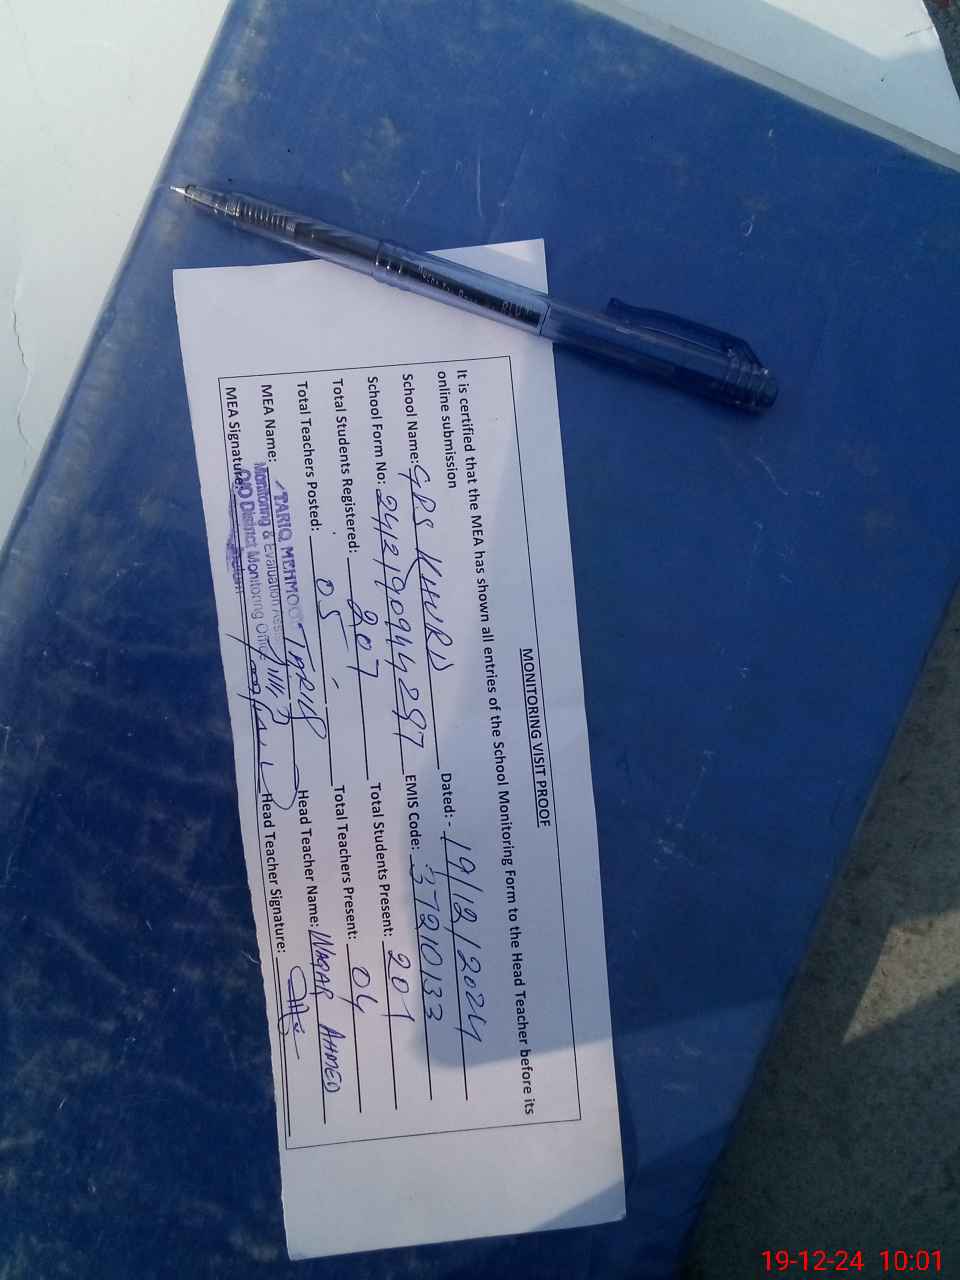 MONITORING VISIT PROOF
It is certified that the MEA has shown all entries of the School Monitoring Form to the Head Teacher before its
online submission
School Name: GPS KHURD Dated: - 19/12/2024
School Form No: EMIS Code: 37210133
Total Students Registered: 207 Total Students Present: 201
Total Teachers Posted: 05 Total Teachers Present: 04
MEA Name: TARIQ Head Teacher Name: WAQAR AHMED
MEA Signature: Head Teacher Signature:
TARIQ MEHMOO
Monitoring & Evaluation Assis
O/O District Monitoring Office
BLUE
19-12-24 10:01